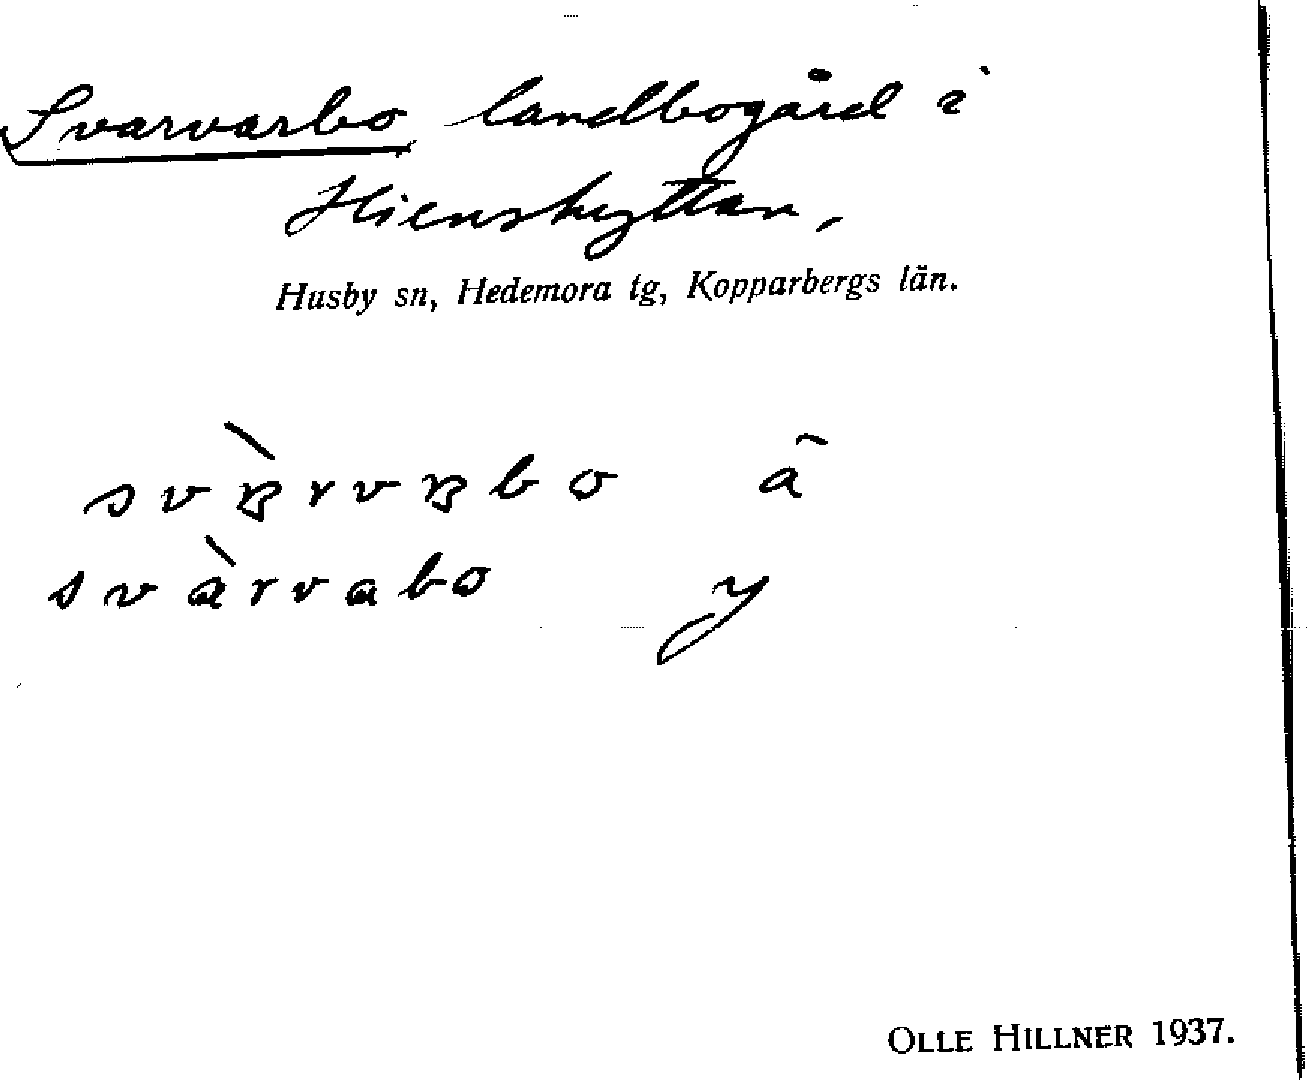 Svarvarbo landbogård i
Hienshyttan,
Husby sn, Hedemora tg, Kopparbergs län.
svàrvabo y
OLLE HILLNER 1937.